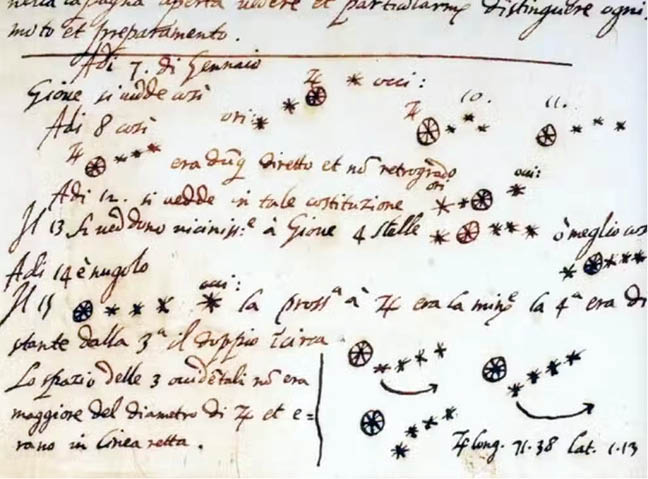 nella capagna aperta vedere et particularmē distinguere ogni
moto et preparamento.
Adi 7. di Gennaio
Gione si vedde così ori: ♃ occi:
Adi 8 così ♃ 10. 11.
♃ era dūq. diretto et nō retrogrado
Adi 12. si vedde in tale costituzione ori occi:
Il 13 si veddono viciniss.e à Gione 4 stelle ò meglio cosi
Adi 14 è nugolo
Il 15 occi: la prossa à ♃ era la mine la 4a era di
stante dalla 3a il doppio īcirca
Lo spazio delle 3 occidētali nō era
maggiore del diametro di ♃ et e=
rano in linea retta.
♃ long. 71.38 Lat. 1.13